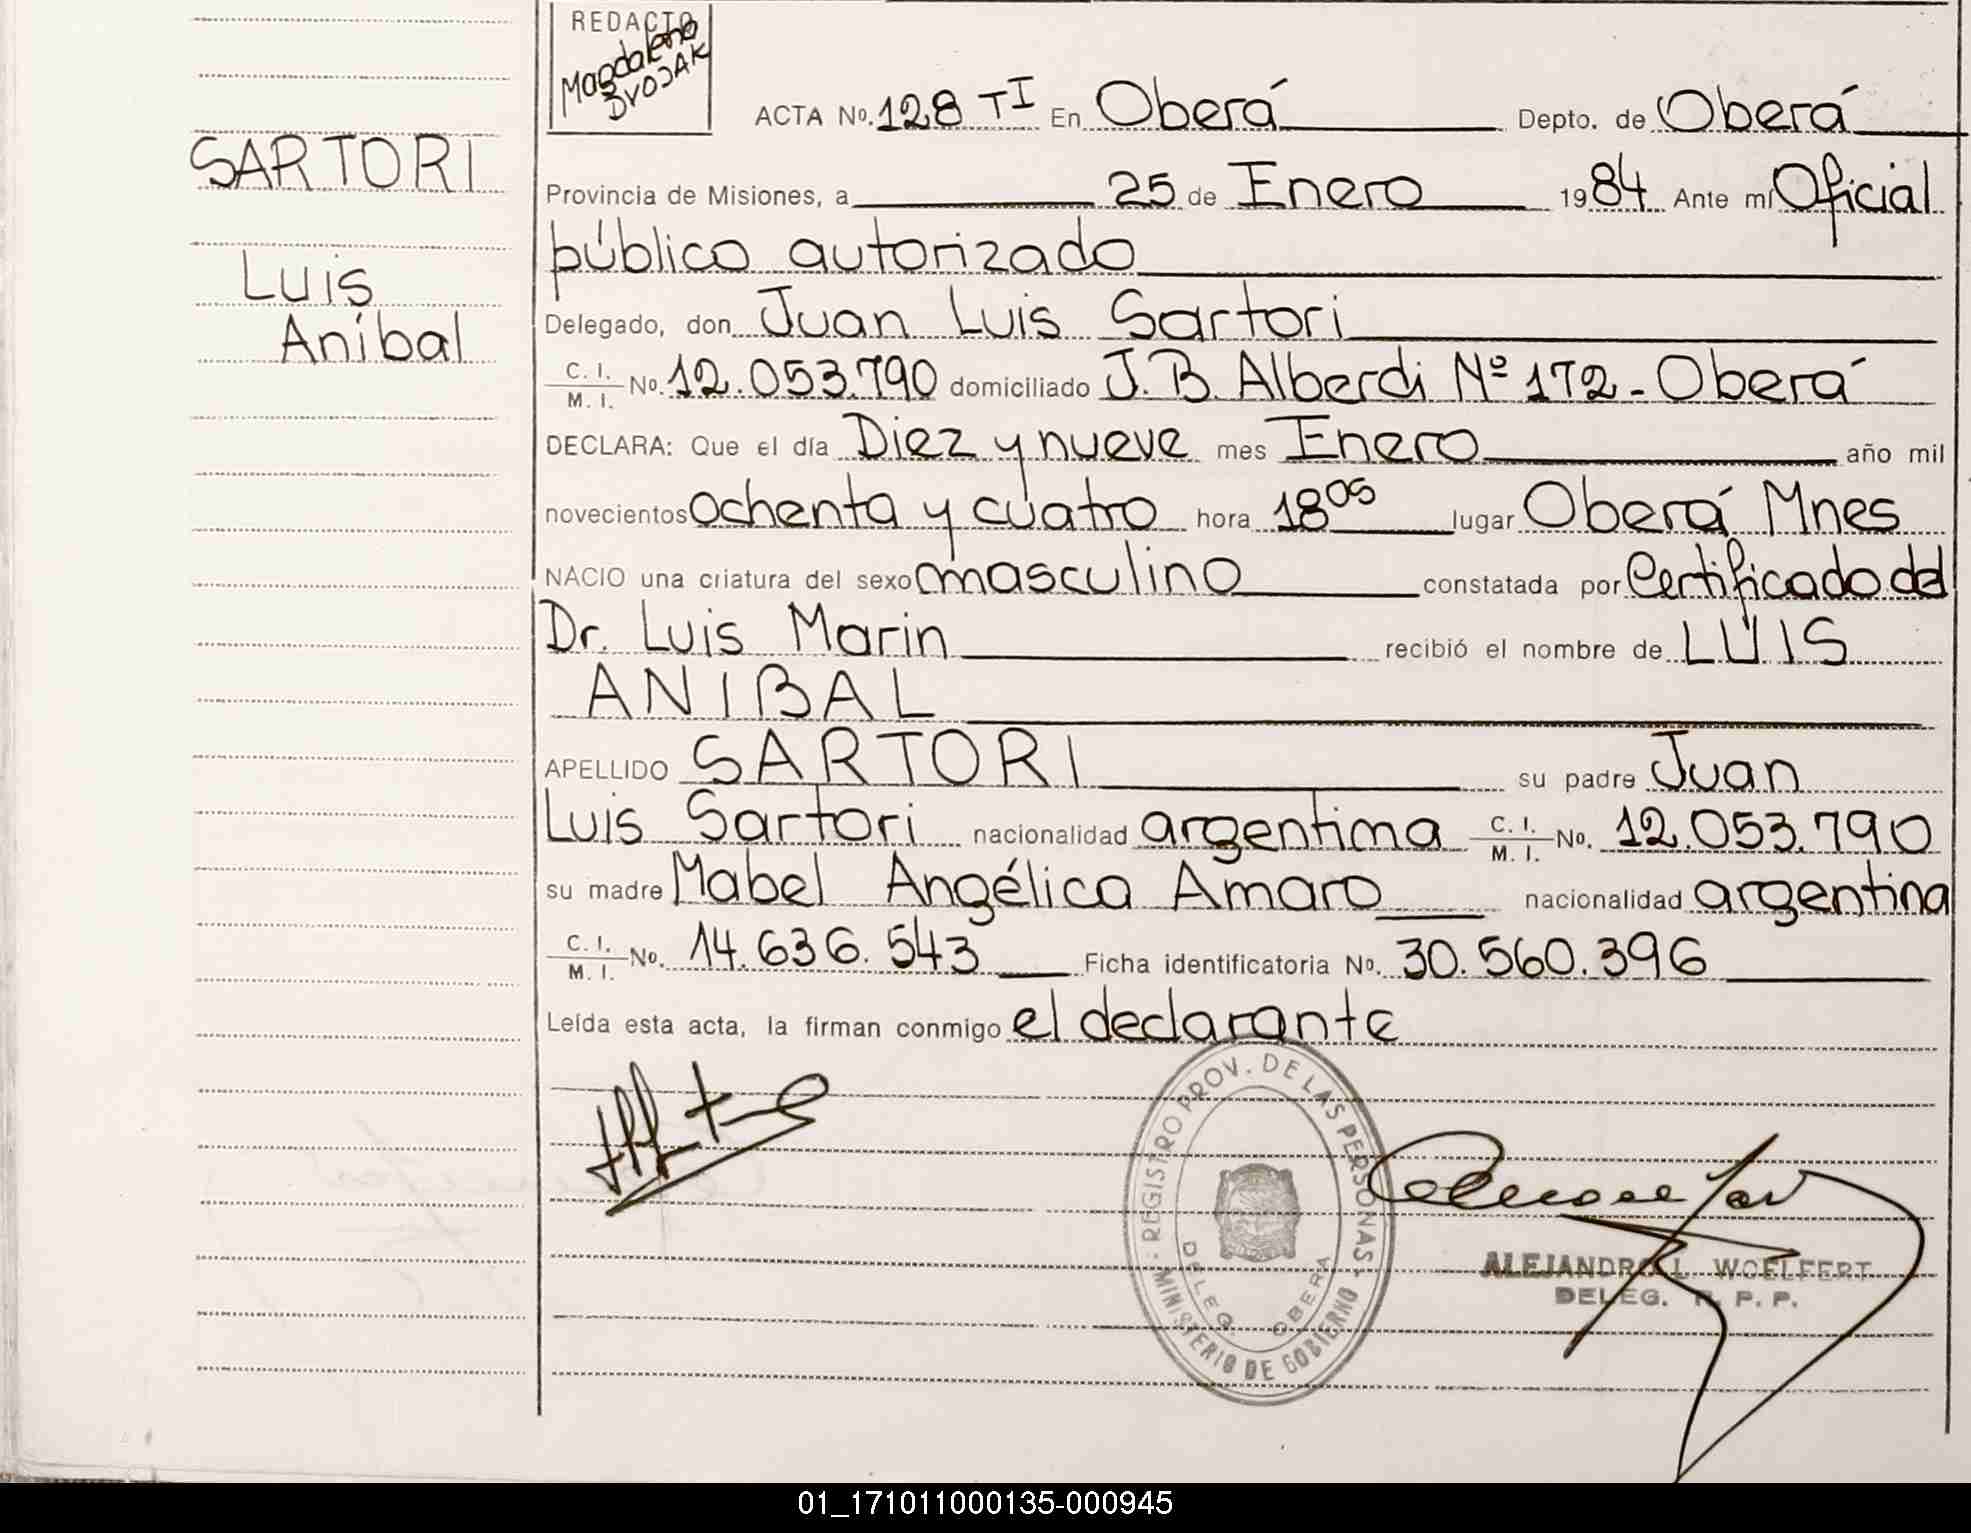 REDACTO
Magdalena
DVOJAK
ACTA No. 128 TI En Oberá Depto. de Oberá
SARTORI
Luis
Aníbal
Provincia de Misiones, a 25 de Enero 1984 Ante mí Oficial
público autorizado
Delegado, don Juan Luis Sartori
C. I. M. I. No. 12.053.790 domiciliado J. B. Alberdi Nº 172 - Oberá
DECLARA: Que el día Diez y nueve mes Enero año mil
novecientos ochenta y cuatro hora 18 05 lugar Oberá Mnes
NACIO una criatura del sexo masculino constatada por Certificado del
Dr. Luis Marin recibió el nombre de LUIS
ANIBAL
APELLIDO SARTORI su padre Juan
Luis Sartori nacionalidad argentina C. I. M. I. No. 12.053.790
su madre Mabel Angélica Amaro nacionalidad argentina
C. I. M. I. No. 14.636.543 Ficha identificatoria No. 30.560.396
Leída esta acta, la firman conmigo el declarante
REGISTRO PROV. DE LAS PERSONAS
DELEG. OBERA
MINISTERIO DE GOBIERNO
ALEJANDRO L. WOELFERT
DELEG. R. P. P.
01_171011000135-000945